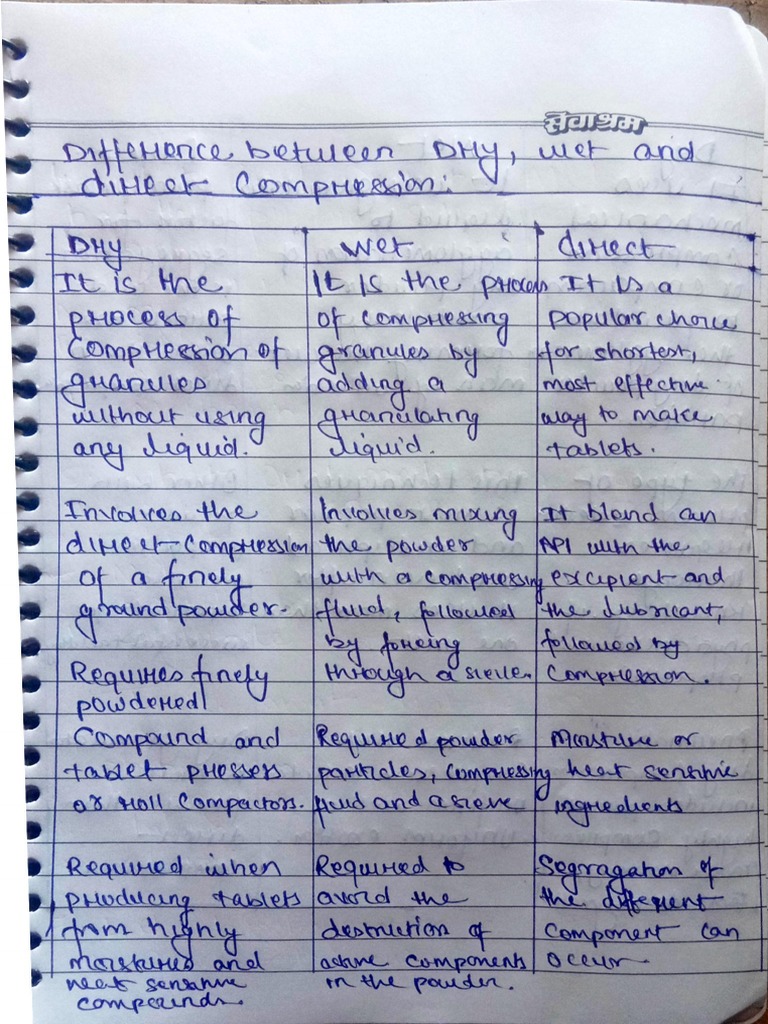 सेवाश्रम
Difference between Dry, wet and
direct compression:
Dry
It is the
process of
compression of
granules
without using
any liquid.
Involves the
direct compression
of a finely
ground powder.
Requires finely
powdered
compound and
tablet presses
or roll compactors.
Required when
producing tablets
from highly
moistured and
heat sensitive
compounds.
Wet
It is the process
of compressing
granules by
adding a
granulating
liquid.
Involves mixing
the powder
with a compressing
fluid, followed
by forcing
through a sieve.
Required powder
particles, compressing
fluid and a sieve
Required to
avoid the
destruction of
active components
in the powder.
direct
It is a
popular choice
for shortest,
most effective
way to make
tablets.
It blend an
API with the
excipient and
the lubricant,
followed by
compression.
Moisture or
heat sensitive
ingredients
Segragation of
the different
component can
occur.